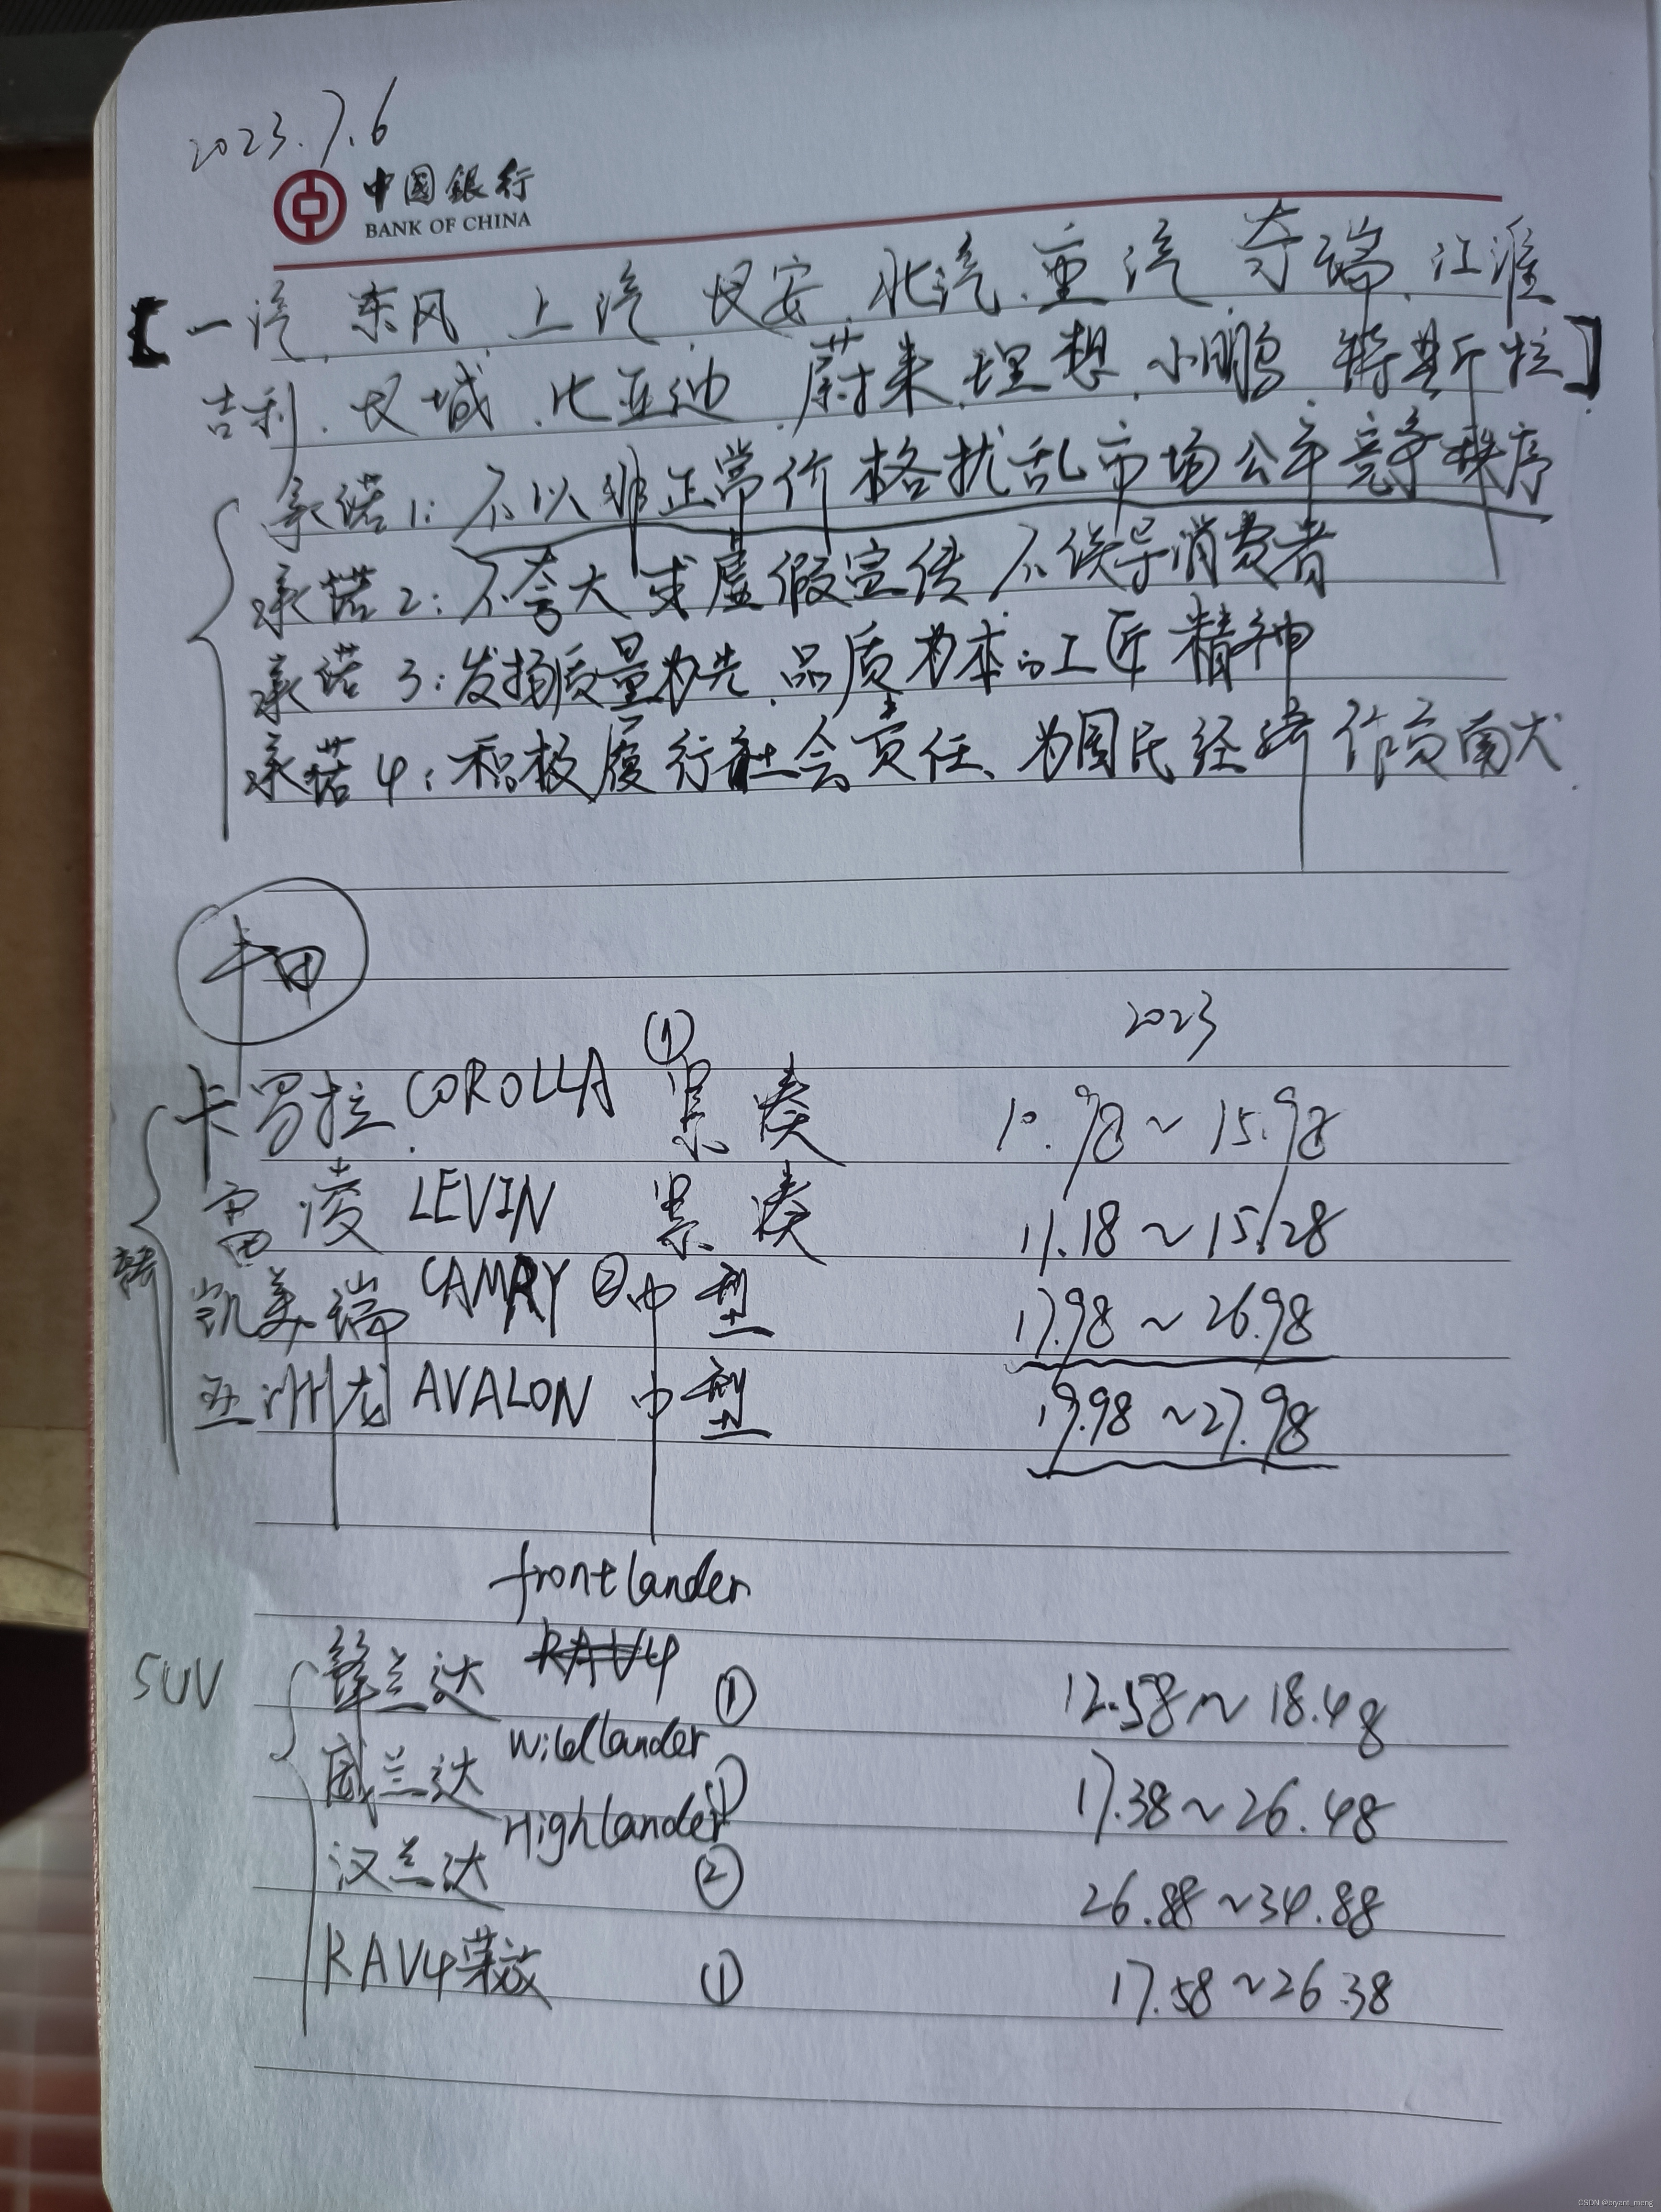 2023.7.6
中国銀行
BANK OF CHINA
【一汽、东风、上汽、长安、北汽、重汽、奇瑞、江淮
吉利、长城、比亚迪、蔚来、理想、小鹏、特斯拉】
承诺1:不以非正常价格扰乱市场公平竞争秩序
承诺2:不夸大或虚假宣传 不误导消费者
承诺3:发扬质量为先、品质为本的工匠精神
承诺4:积极履行社会责任、为国民经济作贡献
丰田
① 2023
卡罗拉 COROLLA 紧凑 10.98~15.98
雷凌 LEVIN 紧凑 11.18~15.28
凯美瑞 CAMRY ②中型 17.98~26.98
亚洲龙 AVALON 中型 19.98~27.98
frontlander
SUV 锋兰达 RAV4 ① 12.58~18.48
威兰达 Wildlander ① 17.38~26.48
汉兰达 Highlander ② 26.88~34.88
RAV4荣放 ① 17.58~26.38
CSDN @bryant_meng